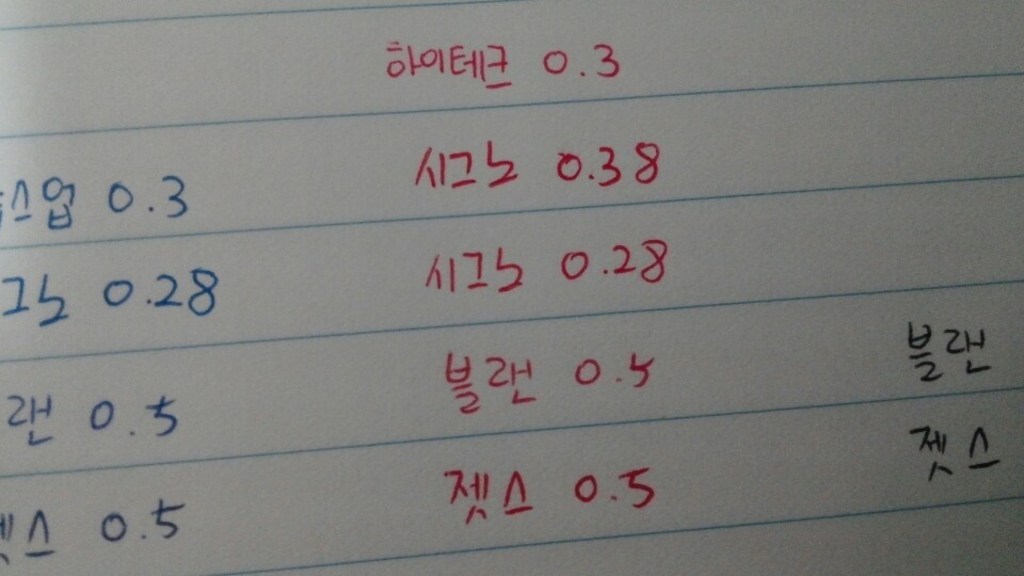 하이테크 0.3
스업 0.3 시그노 0.38
그노 0.28 시그노 0.28
랜 0.5 블랜 0.5 블랜
젯스 0.5 젯스 0.5 젯스